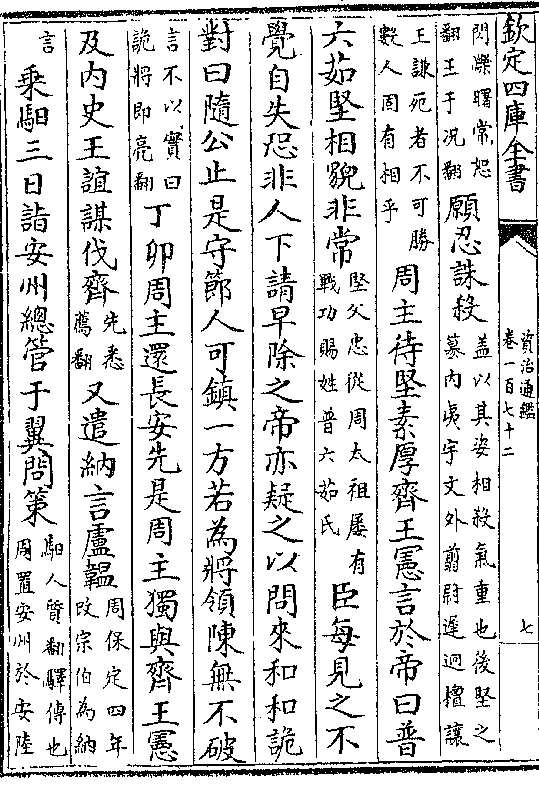 欽定四庫全書
資治通鑑
卷一百七十二
七
閃爍曙常恕
翻王于况翻
願忍誅殺
盖以其姿相殺氣重也後堅之
篡内夷宇文外翦尉遲迥擅讓
王謙死者不可勝
數人固有相乎
周主待堅素厚齊王憲言於帝曰普
六茹堅相貌非常
堅父忠從周太祖屢有
戰功賜姓普六茹氏
臣每見之不
覺自失恐非人下請早除之帝亦疑之以問來和和詭
對曰隨公止是守節人可鎮一方若為將領陳無不破
言不以實曰
詭將即亮翻
丁卯周主還長安先是周主獨與齊王憲
及内史王誼謀伐齊
先悉
薦翻
又遣納言盧韞
周保定四年
改宗伯為納
言
乗馹三日詣安州總管于翼問策
馹人質翻驛傳也
周置安州於安陸